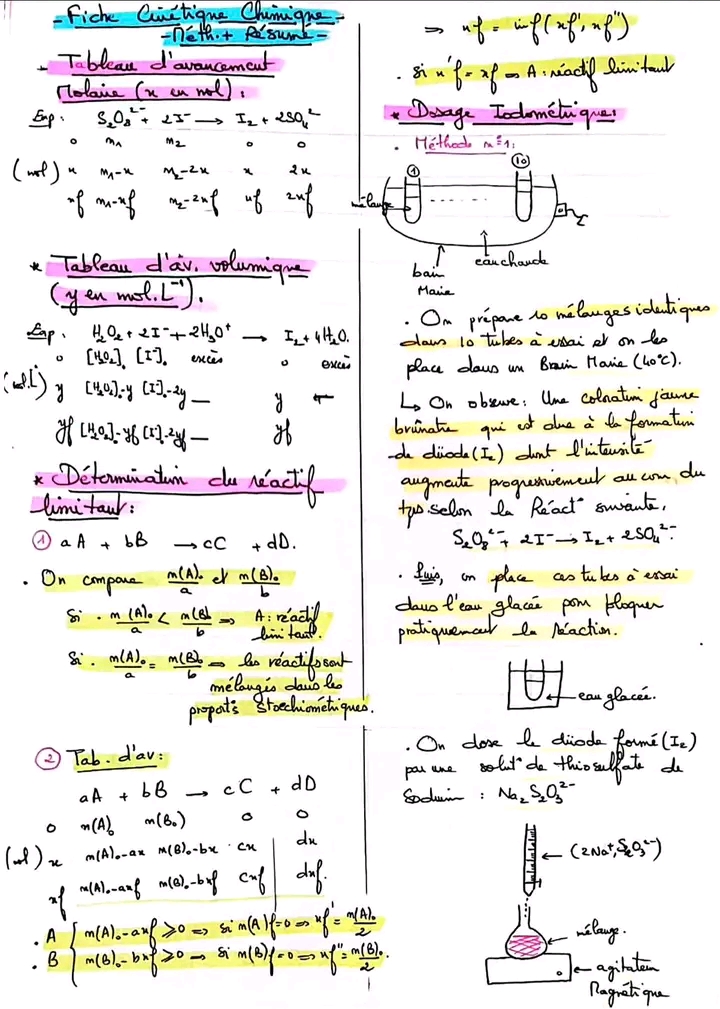 - Fiche Cinétique Chimique -
- Méth. + Résumé -
* Tableau d'avancement
Molaire (x en mol) :
Exp : S₂O₈²⁻ + 2I⁻ → I₂ + 2SO₄²⁻
0 n₁ n₂ 0 0
(mol) x n₁-x n₂-2x x 2x
xf n₁-xf n₂-2xf xf 2xf
* Tableau d'av. volumique
(y en mol.L⁻¹).
Exp. H₂O₂ + 2I⁻ + 2H₃O⁺ → I₂ + 4H₂O.
0 [H₂O₂]₀ [I⁻]₀ excès 0 excès
(mol.L⁻¹) y [H₂O₂]₀-y [I⁻]₀-2y — y
yf [H₂O₂]₀-yf [I⁻]₀-2yf — yf
* Détermination du réactif
limitant :
① aA + bB → cC + dD.
. On compare n(A)₀/a et n(B)₀/b
Si . n(A)₀/a < n(B)₀/b ⇒ A : réactif
limitant.
Si . n(A)₀/a = n(B)₀/b ⇒ les réactifs sont
mélangés dans les
proportᵒˢ Stœchiométriques.
② Tab. d'av :
aA + bB → cC + dD
0 n(A)₀ n(B₀) 0 0
(mol) x n(A)₀-ax n(B)₀-bx cx dx
xf n(A)₀-axf n(B)₀-bxf cxf dxf.
. A { n(A)₀-axf ≥ 0 ⇒ Si n(A)f=0 ⇒ xf' = n(A)₀/2
. B { n(B)₀-bxf ≥ 0 → Si n(B)f=0 ⇒ xf'' = n(B)₀/2.
⇒ xf = inf(xf', xf'')
. Si x'f = xf ⇒ A : réactif limitant
* Dosage Iodométrique :
. Méthode n°1 :
① ⑩
mélange
bain
Marie
eau chaude
. On prépare 10 mélanges identiques
dans 10 tubes à essai et on les
place dans un Brain Marie (40°C).
↳ On observe : Une coloration jaune
brûnatre qui est due à la formation
de diiode (I₂) dont l'intensité
augmente progressivement au cours du
tps selon la Réactᵒ suivante.
S₂O₈²⁻ + 2I⁻ → I₂ + 2SO₄²⁻
. Puis, on place ces tubes à essai
dans l'eau glacée pour bloquer
pratiquement la réaction.
eau glacée.
. On dose le diiode formé (I₂)
par une solutᵒ de thiosulfate de
Sodium : Na₂S₂O₃²⁻
(2Na⁺, S₂O₃²⁻)
mélange.
agitateur
Magnétique